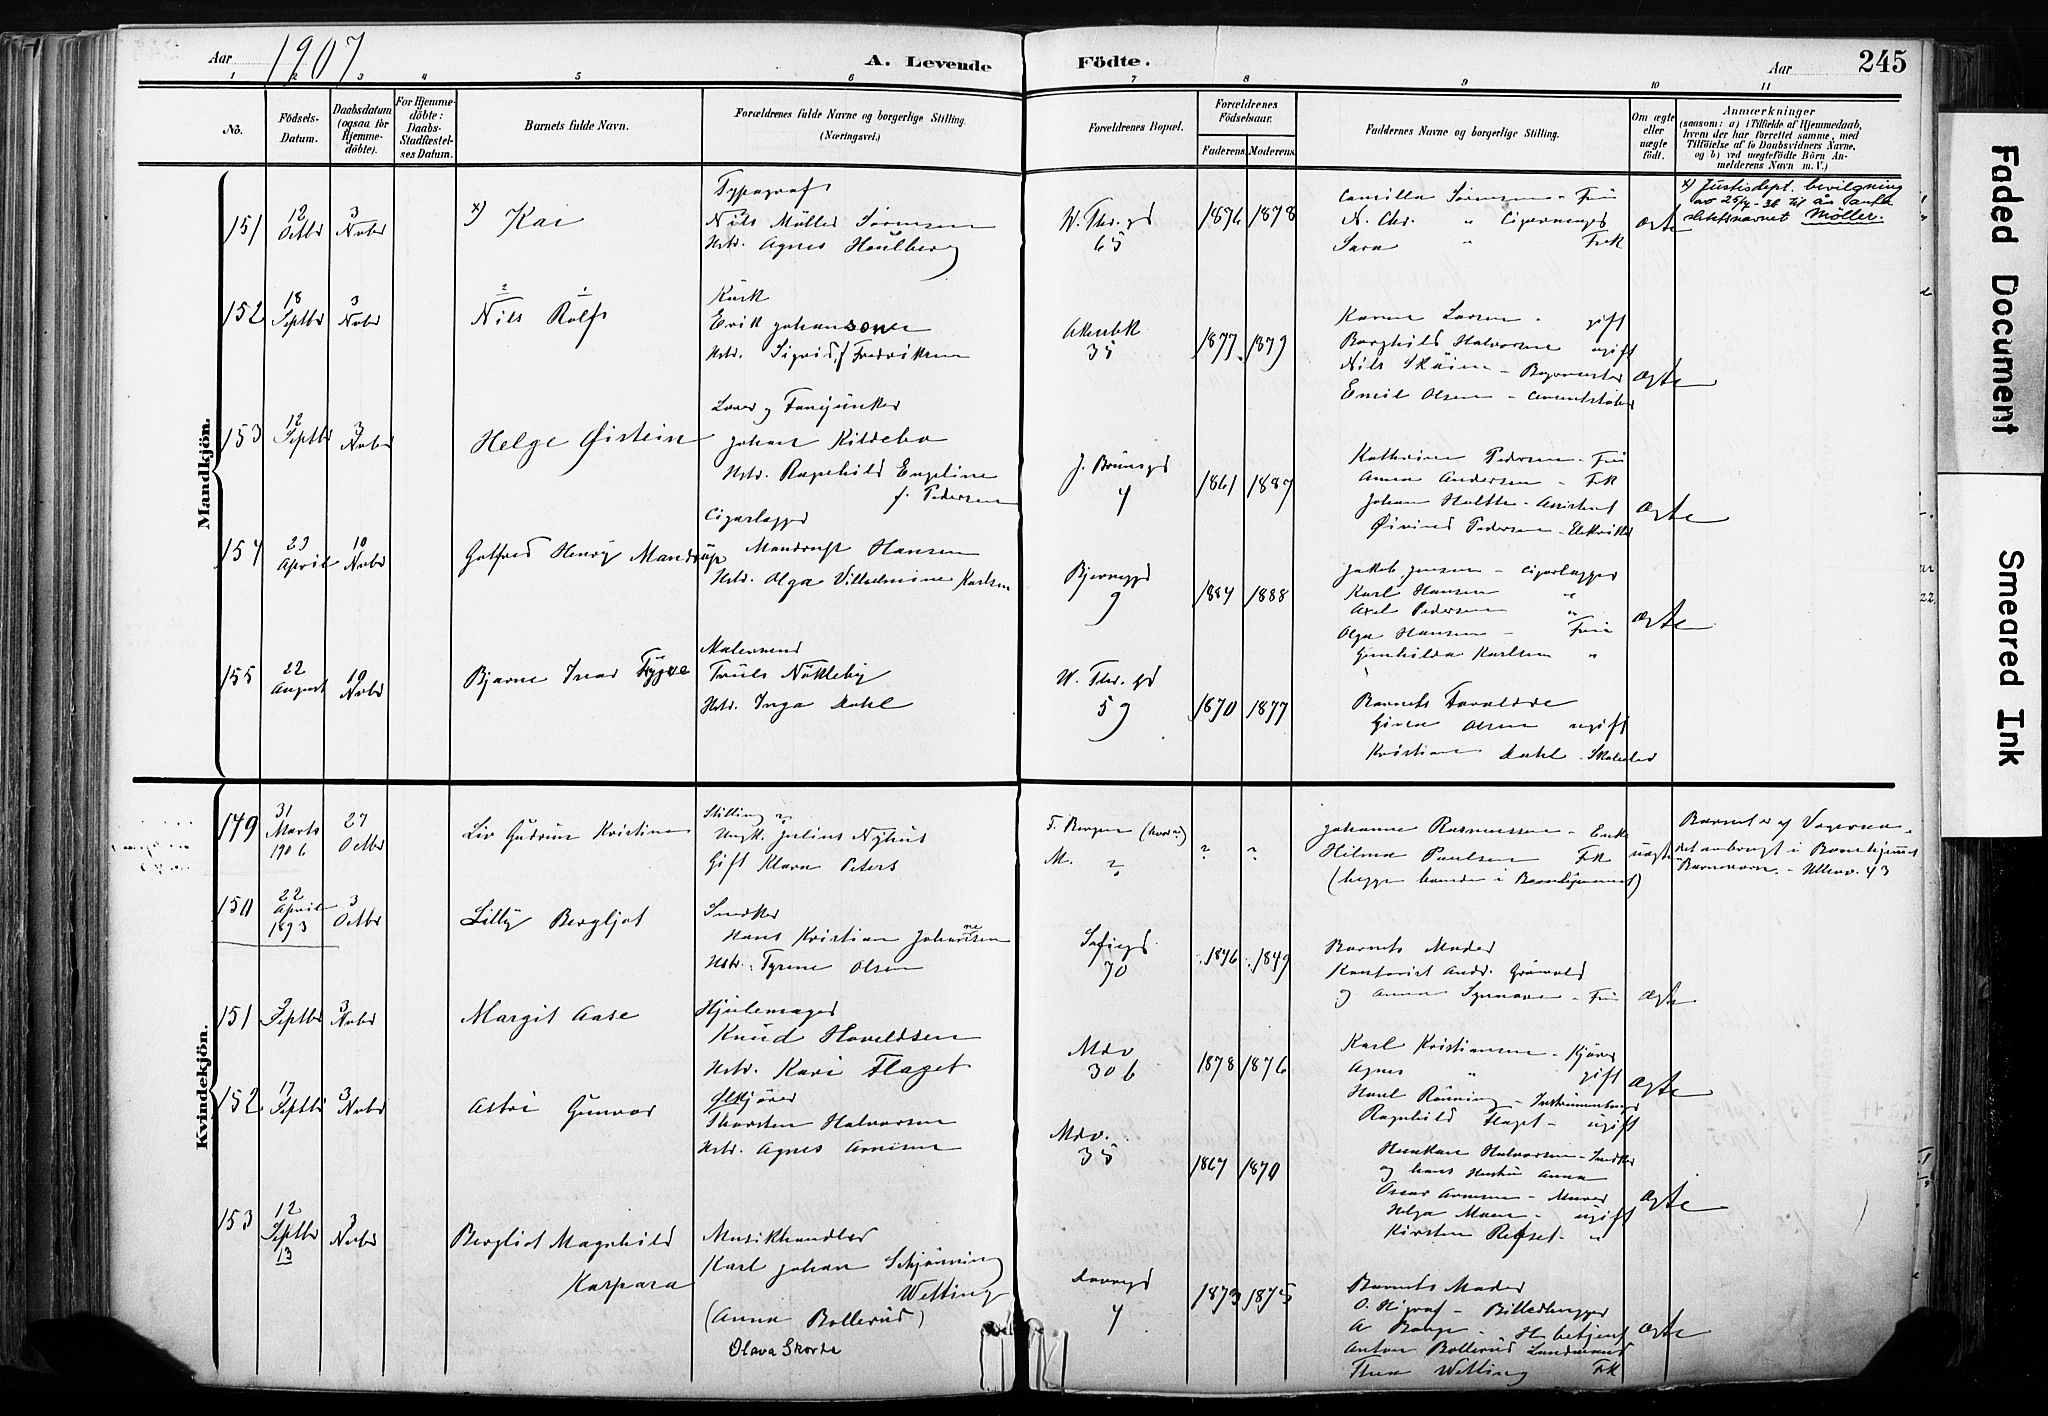 Aar 1907 A. Levende Födte. Aar 245
1 2 3 4 5 6 7 8 9 10 11
Nô.
Födsels-Datum.
Daabsdatum (ogsaa for Hjemme-döbte).
For Hjemme-döbte: Daabs-Stadfæstel-ses Datum.
Barnets fulde Navn.
Forældrenes fulde Navne og borgerlige Stilling.
(Næringsvei.)
Forældrenes Bopæl.
Forældrenes Födselsaar.
Faderens. Moderens.
Faddernes Navne og borgerlige Stilling.
Om ægte eller uægte födt.
Anmærkninger
(saasom: a) i Tilfælde af Hjemmedaab,
hvem der har forrettet samme, med
Tilföielse af to Daabsvidners Navne,
og b) ved uægtefödte Börn An-
melderens Navn m. V.)
Mandkjön.
151 12 Octbr 3 Novbr x) Kai
Typograf
Nils Möller Sörensen
Hstr. Agnes Houlberg
W. Thr. gd 65 1876 1878
Camilla Sörensen - Frue
N. Chr. " Cigarmager
Sara " Frk
ægte
x) Justisdept. bevilgning
av 25/7-36 til å anta
slektsnavnet Möller.
152 18 Septbr 3 Novbr
2 1
Nils Rolf
Kusk
Erik Johansson
Hstr. Sigrid f. Fredriksen
Akersbk 35 1877 1879
Karen Larsen - gift
Borghild Halvorsen ugift
Nils Sköien - Bagermester
Emil Olsen - Cementstöber
ægte
153 12 Septbr 3 Novbr Helge Øistein
Lærer og Fanejunker
Johan Kildebo
Hstr. Ragnhild Engeline
f. Pedersen
J. Brunsgd 4 1861 1887
Kathrine Pedersen - Frue
Anna Andersen - Frk
Johan Holtte - Assistent
Øivind Pedersen - Elektriker
ægte
154 23 April 10 Novbr Gotfred Henry Mandrup
Cigarlagger
Mandrupt Hansen
Hstr. Olga Vilhelmine Karlsen
Bjerregd 9 1884 1888
Jakob Jensen - Cigarlagger
Karl Hansen "
Axel Pedersen "
Olga Hansen - Frue
Gunhilda Karlsen "
ægte
155 22 August 10 Novbr Bjarne Ivar Trygve
Malersvend
Truls Nökleby
Hstr. Inga Dahl
W. Thr. gd 59 1870 1877
Barnets Forældre
Gina Olsen ugift
Kristian Dahl - Skomaker
Kvindekjön.
149 31 Marts 1906 27 Octbr Liv Gudrun Kristine
Stilling ?
Ungk. Julius Nyhus
Gift Klara Peters
F. Bergen (hvor?)
M. ? ? ?
Johanne Rasmussen - Enke
Hilma Paulsen Frk
(begge hænde i Barnehjemmet)
uægte
Barnet er af Vågena-
det anbragt i Barnehjemmet
Barnevern - Ullev. 43
150 22 April 1893 3 Octbr Lilly Bergljot
Snedker
Hans Kristian Johannesen
Hstr. Tyrine Olsen
Sofiegd 70 1846 1849
Barnets Moder
Kontorist Andr. Grönvold
og Anna Synnøve - Frue
ægte
151 2 Septbr 3 Novbr Margit Aase
Hjulemager
Knud Haveldsen
Hstr. Kari Flaget
Mdv 30 b 1878 1876
Karl Kristiansen - Kjører
Agnes " gift
Harl Rönning - Instrumentmager
Ragnhild Flaget - ugift
ægte
152 17 Septbr 3 Novbr Astri Gunvor
Ölkjörer
Thorsten Halvorsen
Hstr. Agnes Arnesen
Mdv. 35 1867 1870
Haakon Halvorsen - Snedker
og hans Hustru Anna
Oscar Arnesen - Murer
Helga Moen - ugift
Kirsten Refset - "
ægte
153 12 Septbr 13 3 Novbr Bergliot Magnhild
Kaspara
Musikhandler
Karl Johan Schjönning
Wetting
(Anna Bollerud)
Olava Skorde
Dovregd 4 1873 1875
Barnets Moder
O. Higraf - Billedhugger
A Borge - H. betjent
Anton Bollerud Landmand
Thea Wetting Frk
ægte
Faded Document
Smeared Ink